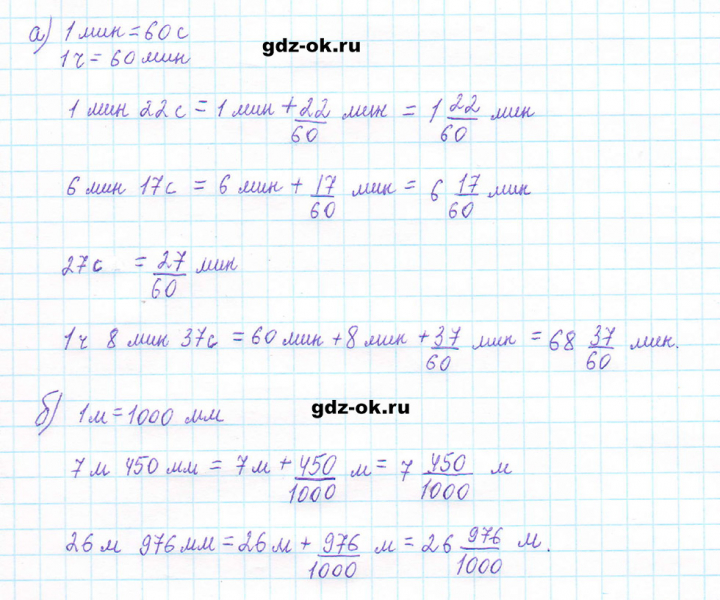 а) 1 мин = 60 с
gdz-ok.ru
1 ч = 60 мин
1 мин 22 с = 1 мин + 22/60 мин = 1 22/60 мин
6 мин 17 с = 6 мин + 17/60 мин = 6 17/60 мин
27 с = 27/60 мин
1 ч 8 мин 37 с = 60 мин + 8 мин + 37/60 мин = 68 37/60 мин.
б) 1 м = 1000 мм
gdz-ok.ru
7 м 450 мм = 7 м + 450/1000 м = 7 450/1000 м
26 м 976 мм = 26 м + 976/1000 м = 26 976/1000 м.